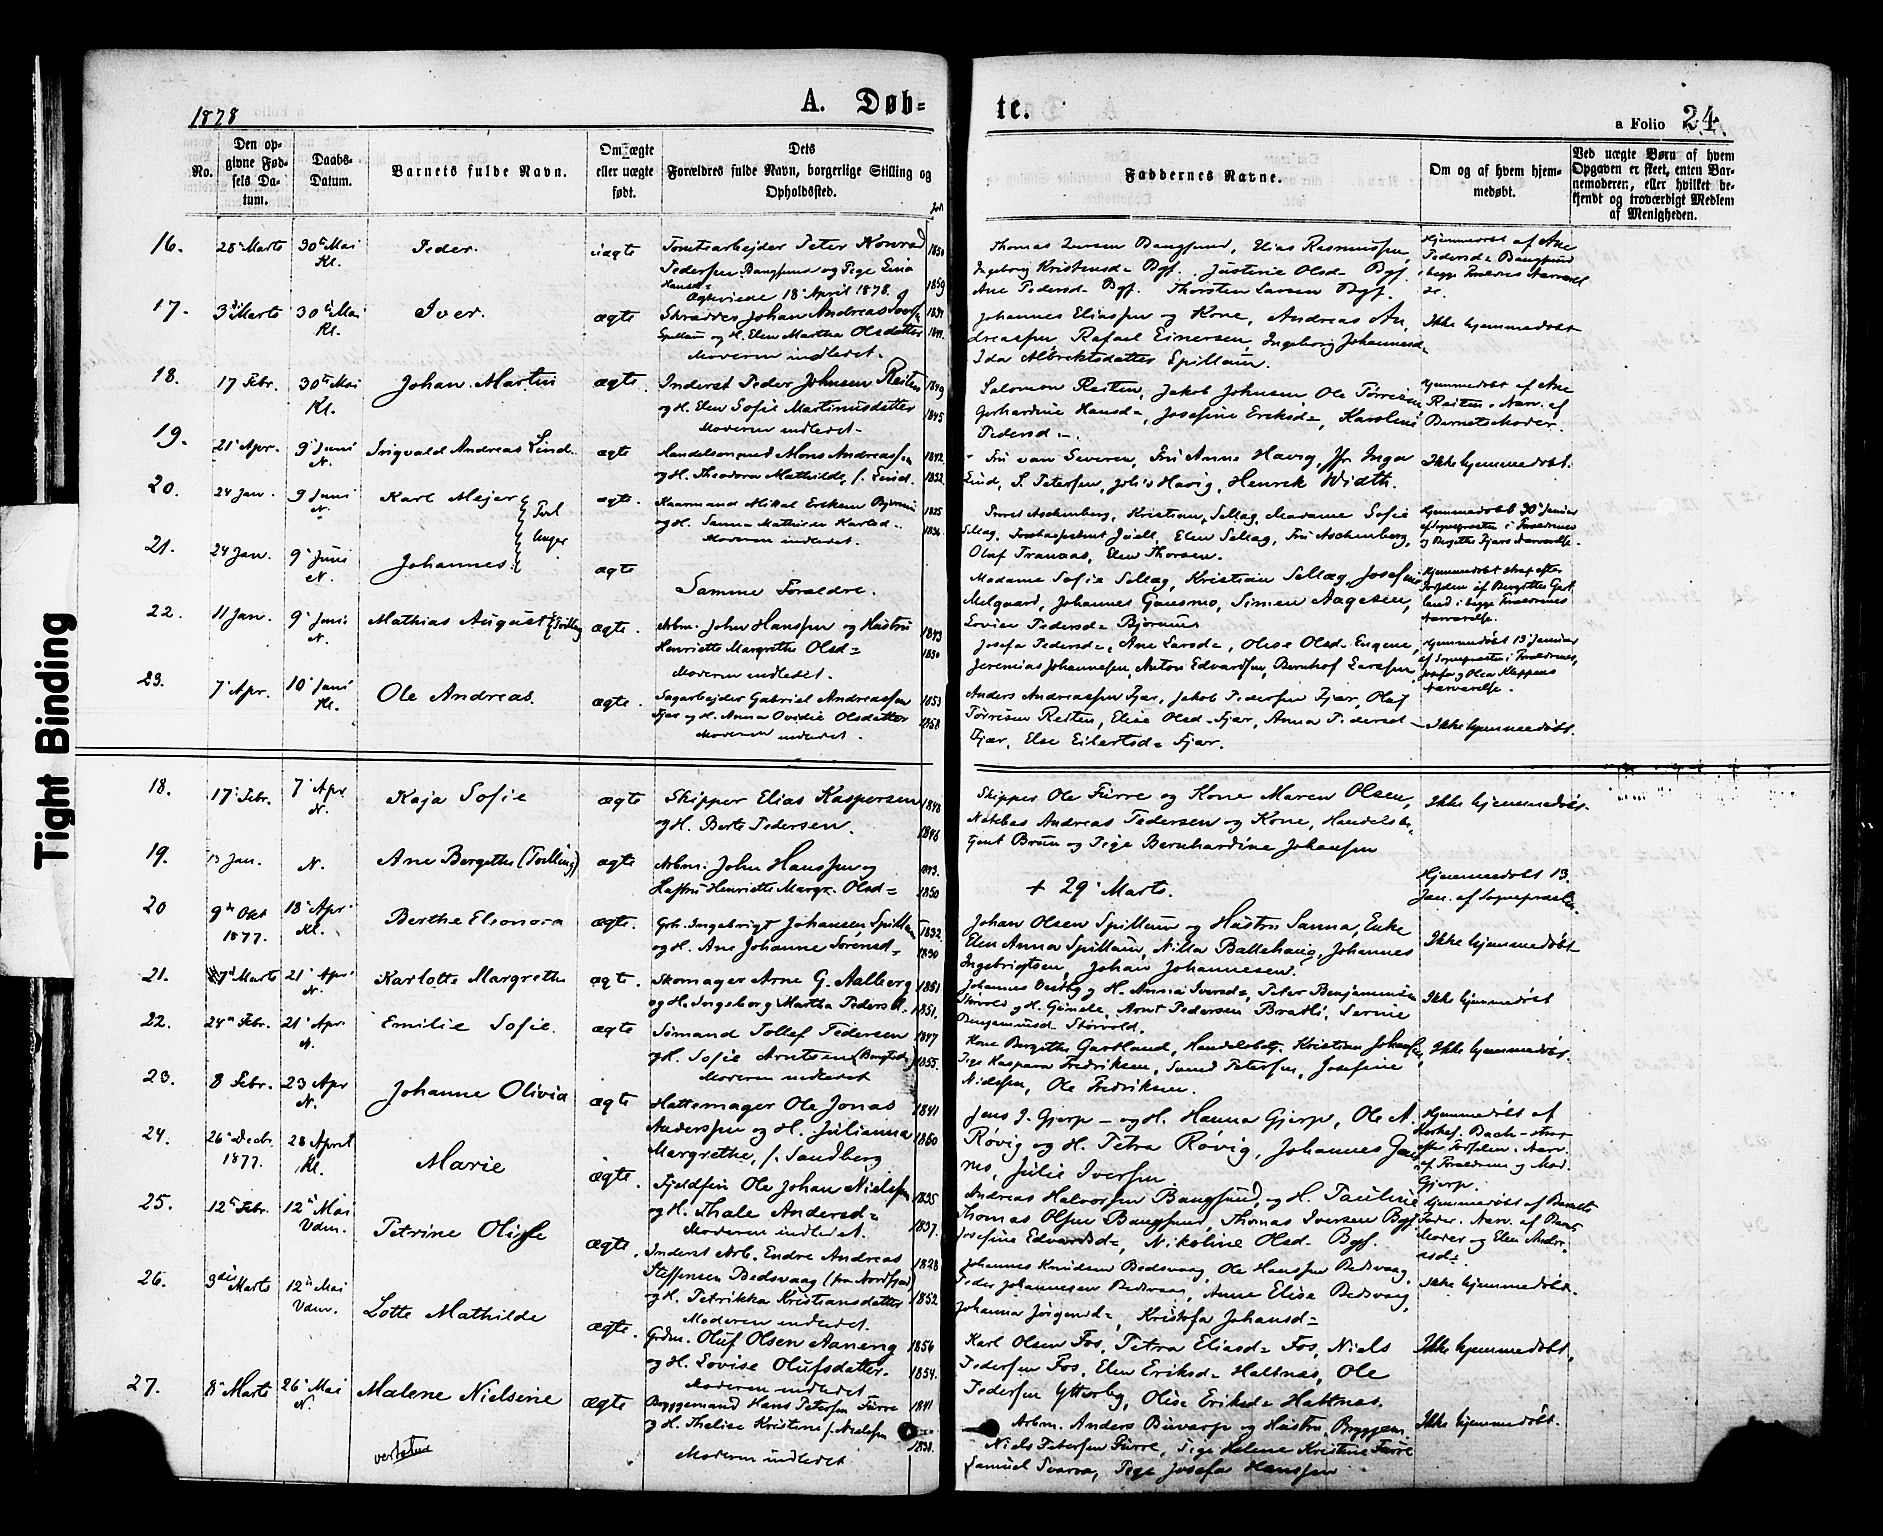 Tight Binding
1878
A. Døb=
te.
a Folio 24.
No.
Den op-
givne Fød-
sels Da-
tum.
Daabs-
Datum.
Barnets fulde Navn.
Om ægte
eller uægte
født.
Dets
Forældres fulde Navn, borgerlige Stilling og
Opholdssted.
Faddernes Navne.
Om og af hvem hjem-
medøbt.
Ved uægte Børn af hvem
Opgaven er skeet, enten Bar-
nemoderen, eller hvilket be-
kjendt og troværdigt Medlem
af Menigheden.
16. 28 Marts 30 Mai Kl. Peder. uægte
Tomtearbejder Peter Konrad 1850
Pedersen Bangsund og Pige Lina 1859
Hansd=
Ægteviede 18 April 1878.
Thomas Larsen Bangsund, Elias Rasmussen,
Ingeborg Kristensd= Bgs. Justine Olsd= Bgs.
Ane Pedersd= Bgs. Thorsten Larsen Bgs.
Hjemmedøbt af Ane
Pedersd= Bangsund
i begge Forældres Nærværelse.
17. 3 Marts 30 Mai Kl. Iver. ægte
Skrædder Johan Andreas
Spillum og H. Elen Martha Olsdatter
Moderen indledet.
Johannes Eliassen og Kone, Andreas An-
dreassen, Rafael Einersen, Ingeborg Johannesd=
Ida Albrektsdatter Spillum.
Ikke hjemmedøbt
18. 17 Febr. 30 Mai Kl. Johan Martin ægte.
Inderst Peder Johnsen Resten 1849
og H. Elen Sofie Martinusdatter 1845
Moderen indledet.
Salomon Resten, Jakob Johnsen, Ole Tørrisen
Gerhardine Hansd=, Josefine Eriksd=, Karoline
Pedersd=.
Hjemmedøbt af Ane
Resten. Nærv. af
Barnets Moder.
19. 21 Apr. 9 Juni N. Ingvald Andreas Lind. ægte
Handelsmand Mons Andreassen 1842
og H. Theodora Mathilde, f. Lind. 1852.
Fru van Severen, Fru Anne Havig, Jfr. Inga
Lind, S. Petersen, Johs Havig, Henrik Width.
Ikke hjemmedøbt.
20. 24 Jan. 9 Juni N. Karl Mejer ægte.
Tvil
linger
Kaarmand Mikal Eriksen Bjørum 1835
og H. Sanna Mathilde Karlsd= 1836
Moderen indledet.
Provst Aschenberg, Kristian Sellæg, Madame Sofie
Sellæg, Elen Sellæg, Fru Aschenberg,
Olaf Tranaas, Elen Thorsen.
Hjemmedøbt 30 Januar
af Sognepræsten i Forældrenes
21. 24 Jan. 9 Juni N. Johannes ægte
Samme Forældre.
Madame Sofie Sellæg, Kristian Sellæg, Josefine
Melgaard, Johannes Gansmo, Simen Aagesen,
Lovise Pedersd= Bjørum
Hjemmedøbt strax efter
Fødselen af Bergitte Gart-
land i begge Forældrenes
Nærværelse.
22. 11 Jan. 9 Juni N. Mathias August Tvilling ægte.
Arbm. John Hanssen og Hustru 1843
Henriette Margrethe Olsd= 1850
Moderen indledet.
Josefa Pedersd=, Ane Larsd=, Olise Olsd= Engene,
Jeremias Johannesen, Anton Edvardsen, Bernhof Larssen
Hjemmedøbt 13 Januar
af Sognepræsten i Forældrenes,
Josefa og Olea Kleppens
Nærværelse.
23. 7 Apr. 10 Juni Kl. Ole Andreas. ægte.
Sagarbejder Gabriel Andreassen 1853
Fjær og H. Anna Ovidie Olsdatter 1858
Moderen indledet.
Anders Andreassen Fjær, Jakob Pedersen Fjær, Olaf
Tørrisen Resten, Elise Olsd. Fjær, Anna Pedersd=
Fjær, Else Eilertsd= Fjær.
Ikke hjemmedøbt.
18. 17 Febr. 7 Apr. N. Kaja Sofie ægte
Skipper Elias Kaspersen 1848
og H. Berte Pedersen. 1846
Skipper Ole Fürre og Kone Maren Olsen,
Andreas Pedersen og Kone, Handelsbe-
tjent Bruun og Pige Bernhardine Johansen
Ikke hjemmedøbt.
19. 13 Jan. N. Ane Bergethe (Tvilling) ægte
Arbm. John Hanssen og 1843.
Hustru Henriette Margr. Olsd= 1850
+ 29 Marts.
Hjemmedøbt 13.
Jan. af Sognepræsten.
20 9 Okt 1877. 18 Apr. Kl. Berthe Elonora ægte.
Grb. Ingebrigt Johansen Spillum 1832.
og H. Ane Johanne Sørensd= 1830
Johan Olsen Spillum og Hustru Sanna, Enke
Elen Anna Spillum, Nilla Ballehaug, Johannes
Ingebrigtsen, Johan Johannesen.
Ikke hjemmedøbt
21. 7 Marts 21 Apr. N. Karlotte Margrethe ægte.
Skomager Arne G. Aalberg 1851
og H. Ingeborg Martha Pedersd. 1851.
Johannes Vestby og H. Anna Iversd=, Peter Benjaminsen
Størvold og H. Gunele, Arnt Pedersen Bratli, Serine
Benjaminsd Størvold.
Ikke hjemmedøbt
22. 24 Febr. 21 Apr. N. Emilie Sofie. ægte
Sømand Tollef Pedersen 1847
og H. Sofie Arntsen 1855.
Moderen indledet
Kone Bergethe Gartland, Handelsbetj. Kristian Johansen,
Pige Kaspara Fredriksen, Svend Petersen, Josefine
Nielsen, Ole Fredriksen.
Ikke hjemmedøbt.
23. 8 Febr. 23 Apr N. Johanne Olivia ægte
Hattemager Ole Jonas 1841
Anderssen og H. Julianna 1860
Margrethe, f. Sandberg
Jens J. Gjerp og H. Hanna Gjerp, Ole A.
Røvig og H. Petra Røvig, Johannes Gans-
mo, Julie Iversen.
Hjemmedøbt af
Bach strax
efter Fødselen. Nærv.
af Forældrene og Mad.
Gjerp.
24. 26 Decbr. 1877. 28 April Kl. Marie ægte.
Fjeldfin Ole Johan Nielssen 1835
og H. Thale Andersd= 1837.
Moderen indledet.
Andreas Halvorsen Bangsund og H. Pauline
Thomas Olsen Bangsund, Thomas Iversen Bgs.
Josefine Edvardsd=, Nikoline Olsd= Bgs.
Hjemmedøbt af Barnets
Fader. Nærv. af Barnets
Moder og Elen Anders-
sd=
25. 12 Febr. 12 Mai Vdm. Petrine Olisse ægte.
Inderst Arb. Endre Andreas 1828
Steffensen Bedsvaag (fra Nordfjord)
og H. Petrikka Kristiansdatter 1852
Moderen indledet.
Johannes Knudsen Bedsvaag, Ole Hanssen Bedsvaag,
Peder Johannessen Bedsvaag, Anne Elise Bedsvaag,
Johanna Jørgensd=, Kristofa Johansd=
Ikke hjemmedøbt.
26. 3die Marts 12 Mai Vdm. Lotte Mathilde ægte.
Grdm. Oluf Olsen Aaneng 1856
og H. Lovise Olufsdatter. 1854.
Moderen indledet
Karl Olsen Fos, Petra Eliasd= Fos, Niels
Pedersen Fos, Elen Eriksd= Haltnes, Ole
Pedersen Ytterby, Olise Eriksd= Haltnes.
Ikke hjemmedøbt.
27. 8 Marts 26 Mai N Malene Nielsine ægte
Bryggemand Hans Petersen Fürre 1841
og H. Thalise Kristine f. Nielsen 1838.
Moderen indledet
Arbm. Anders Buvarp og Hustru, Bryggem.
Niels Petersen Fürre, Pige Helene Kristine Fürre
Samuel Svarva, Pige Josefa Hanssen
Ikke hjemmedøbt.